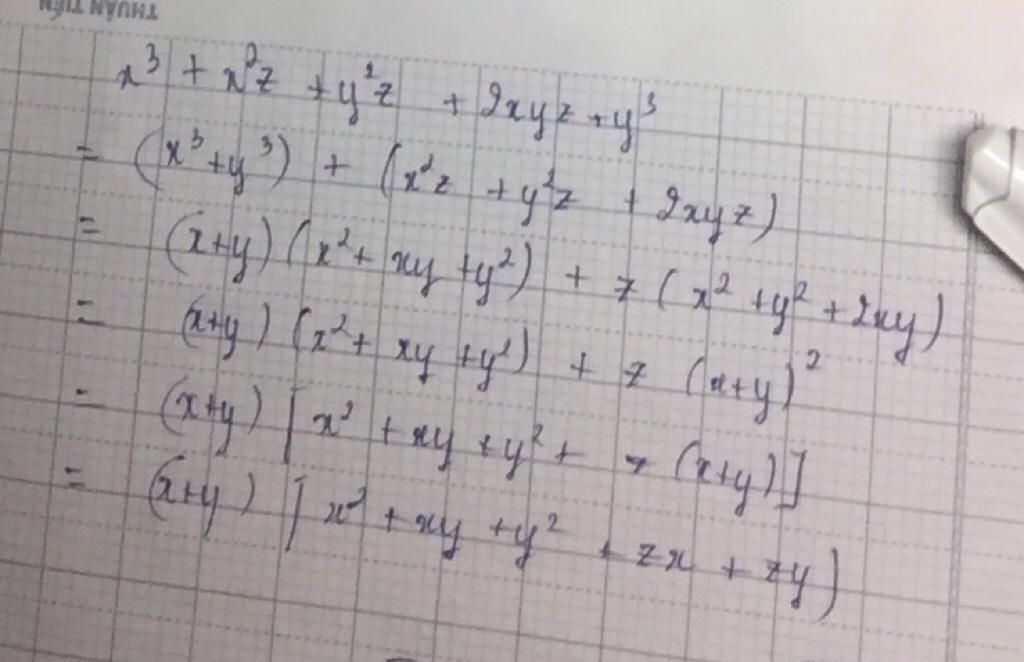 THUẬN TIẾN
x³ + x²z + y²z + 2xyz + y³
= (x³+y³) + (x²z + y²z + 2xyz)
= (x+y)(x²+ xy +y²) + z(x² +y² +2xy)
= (x+y)(x²+ xy +y²) + z (x+y)²
= (x+y) [x² + xy +y² + z (x+y)]
= (x+y) [x² + xy +y² + zx + zy)